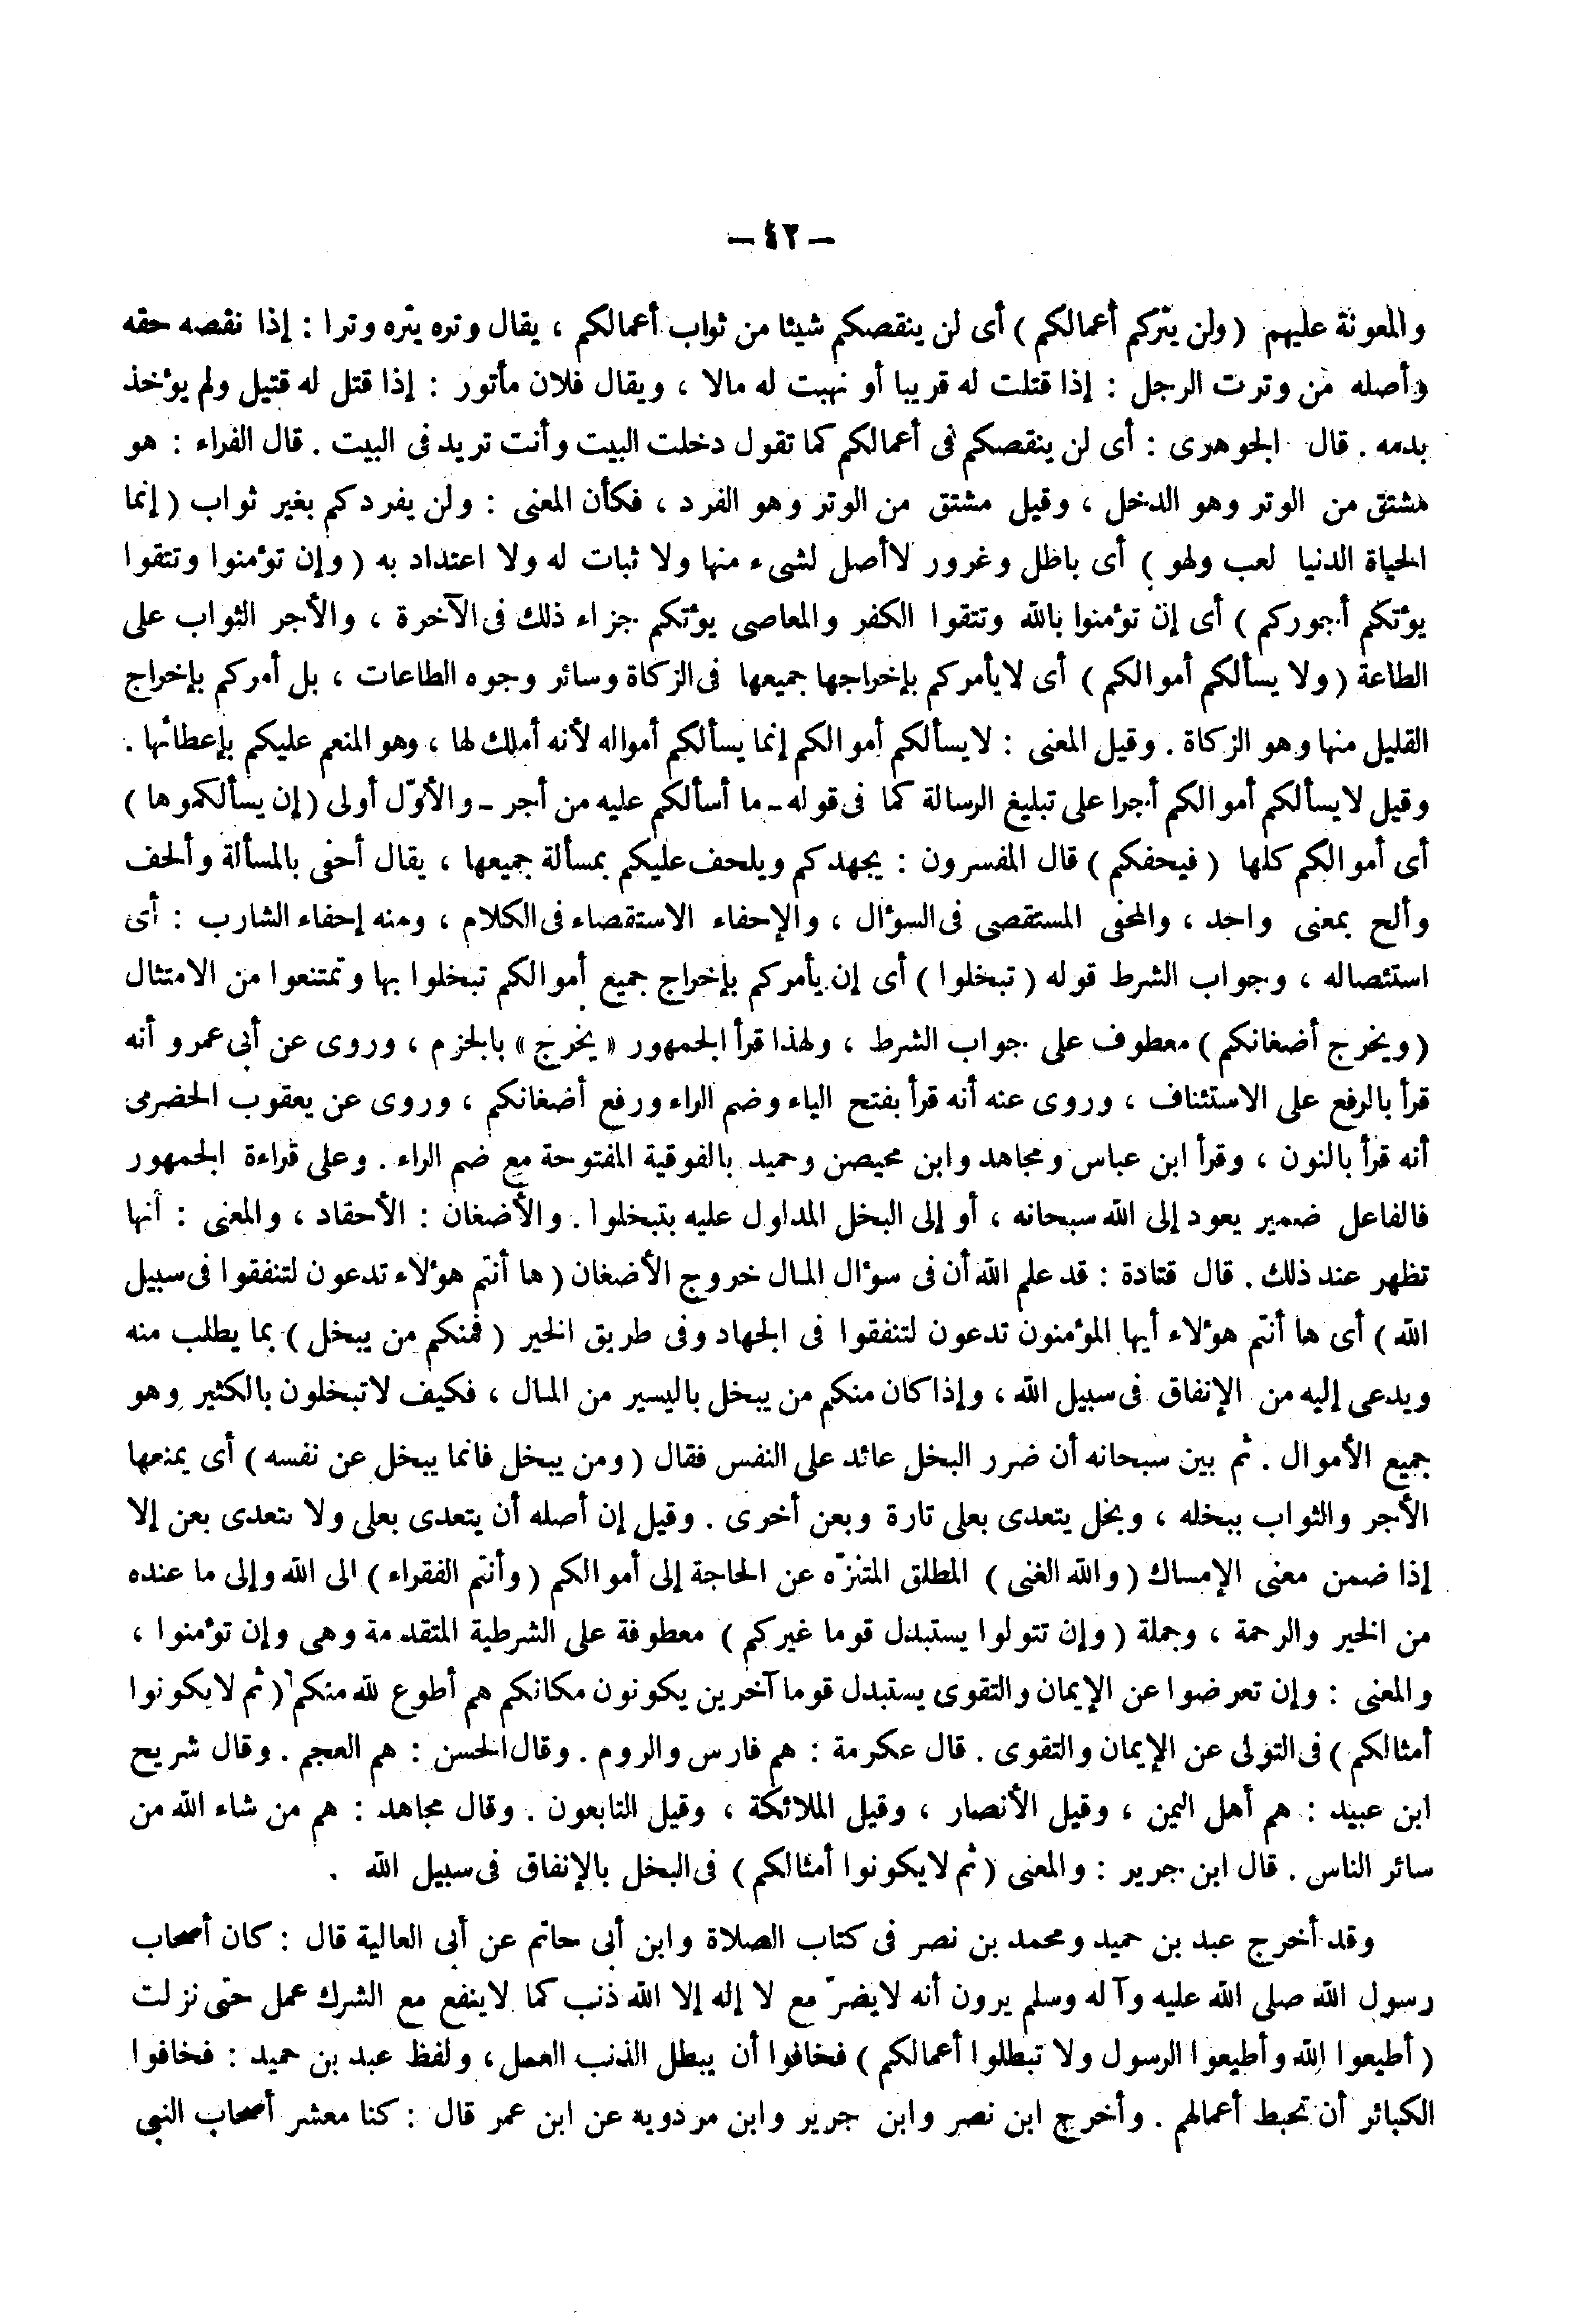 — ٤٢ —
والمعونة عليهم ( ولن يتركم أعمالكم ) أى لن ينقصكم شيئا من ثواب أعمالكم ، يقال وتره يتره وترا : إذا نقصه حقه
وأصله من وترت الرجل : إذا قتلت له قريبا أو نهبت له مالا ، ويقال فلان مأتور : إذا قتل له قتيل ولم يؤخذ
بدمه . قال الجوهرى : أى لن ينقصكم فى أعمالكم كما تقول دخلت البيت وأنت تريد فى البيت . قال الفراء : هو
مشتق من الوتر وهو الدخل ، وقيل مشتق من الوتر وهو الفرد ، فكأن المعنى : ولن يفردكم بغير ثواب ( إنما
الحياة الدنيا لعب ولهو ) أى باطل وغرور لا أصل لشىء منها ولا ثبات له ولا اعتداد به ( وإن تؤمنوا وتتقوا
يؤتكم أجوركم ) أى إن تؤمنوا بالله وتتقوا الكفر والمعاصى يؤتكم جزاء ذلك فى الآخرة ، والأجر الثواب على
الطاعة ( ولا يسألكم أموالكم ) أى لا يأمركم بإخراجها جميعها فى الزكاة وسائر وجوه الطاعات ، بل أمركم بإخراج
القليل منها وهو الزكاة . وقيل المعنى : لا يسألكم أموالكم إنما يسألكم أمواله لأنه أملك لها ، وهو المنعم عليكم بإعطائها .
وقيل لا يسألكم أموالكم أجرا على تبليغ الرسالة كما فى قوله ـ ما أسألكم عليه من أجر ـ والأوّل أولى ( إن يسألكموها )
أى أموالكم كلها ( فيحفكم ) قال المفسرون : يجهدكم ويلحف عليكم بمسألة جميعها ، يقال أحفى بالمسألة وألحف
وألح بمعنى واحد ، والمحفى المستقصى فى السؤال ، والإحفاء الاستقصاء فى الكلام ، ومنه إحفاء الشارب : أى
استئصاله ، وجواب الشرط قوله ( تبخلوا ) أى إن يأمركم بإخراج جميع أموالكم تبخلوا بها وتمتنعوا من الامتثال
( ويخرج أضغانكم ) معطوف على جواب الشرط ، ولهذا قرأ الجمهور « يخرج » بالجزم ، وروى عن أبى عمرو أنه
قرأ بالرفع على الاستئناف ، وروى عنه أنه قرأ بفتح الياء وضم الراء ورفع أضغانكم ، وروى عن يعقوب الحضرمى
أنه قرأ بالنون ، وقرأ ابن عباس ومجاهد وابن محيصن وحميد بالفوقية المفتوحة مع ضم الراء . وعلى قراءة الجمهور
فالفاعل ضمير يعود إلى الله سبحانه ، أو إلى البخل المدلول عليه بتبخلوا . والأضغان : الأحقاد ، والمعنى : أنها
تظهر عند ذلك . قال قتادة : قد علم الله أن فى سؤال المال خروج الأضغان ( ها أنتم هؤلاء تدعون لتنفقوا فى سبيل
الله ) أى ها أنتم هؤلاء أيها المؤمنون تدعون لتنفقوا فى الجهاد وفى طريق الخير ( فمنكم من يبخل ) بما يطلب منه
ويدعى إليه من الإنفاق فى سبيل الله ، وإذا كان منكم من يبخل باليسير من المال ، فكيف لا تبخلون بالكثير وهو
جميع الأموال . ثم بين سبحانه أن ضرر البخل عائد على النفس فقال ( ومن يبخل فانما يبخل عن نفسه ) أى يمنعها
الأجر والثواب ببخله ، وبخل يتعدى بعلى تارة وبعن أخرى . وقيل إن أصله أن يتعدى بعلى ولا يتعدى بعن إلا
إذا ضمن معنى الإمساك ( والله الغنى ) المطلق المتنزّه عن الحاجة إلى أموالكم ( وأنتم الفقراء ) الى الله وإلى ما عنده
من الخير والرحمة ، وجملة ( وإن تتولوا يستبدل قوما غيركم ) معطوفة على الشرطية المتقدمة وهى وإن تؤمنوا ،
والمعنى : وإن تعرضوا عن الإيمان والتقوى يستبدل قوما آخرين يكونون مكانكم هم أطوع لله منكم ( ثم لا يكونوا
أمثالكم ) فى التولى عن الإيمان والتقوى . قال عكرمة : هم فارس والروم . وقال الحسن : هم العجم . وقال شريح
ابن عبيد : هم أهل اليمن ، وقيل الأنصار ، وقيل الملائكة ، وقيل التابعون . وقال مجاهد : هم من شاء الله من
سائر الناس . قال ابن جرير : والمعنى ( ثم لا يكونوا أمثالكم ) فى البخل بالإنفاق فى سبيل الله .
وقد أخرج عبد بن حميد ومحمد بن نصر فى كتاب الصلاة وابن أبى حاتم عن أبى العالية قال : كان أصحاب
رسول الله صلى الله عليه وآله وسلم يرون أنه لا يضرّ مع لا إله إلا الله ذنب كما لا ينفع مع الشرك عمل حتى نزلت
( أطيعوا الله وأطيعوا الرسول ولا تبطلوا أعمالكم ) فخافوا أن يبطل الذنب العمل ، ولفظ عبد بن حميد : فخافوا
الكبائر أن تحبط أعمالهم . وأخرج ابن نصر وابن جرير وابن مردويه عن ابن عمر قال : كنا معشر أصحاب النبى